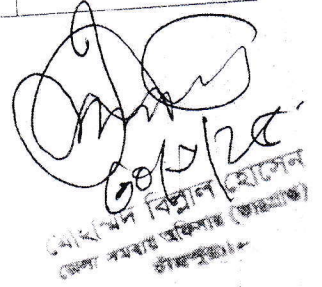 ৩০/৫/২৫
মোহাম্মদ বিল্লাল হোসেন
জেলা সমবায় অফিসার (ভারপ্রাপ্ত)
চাঁদপুর।